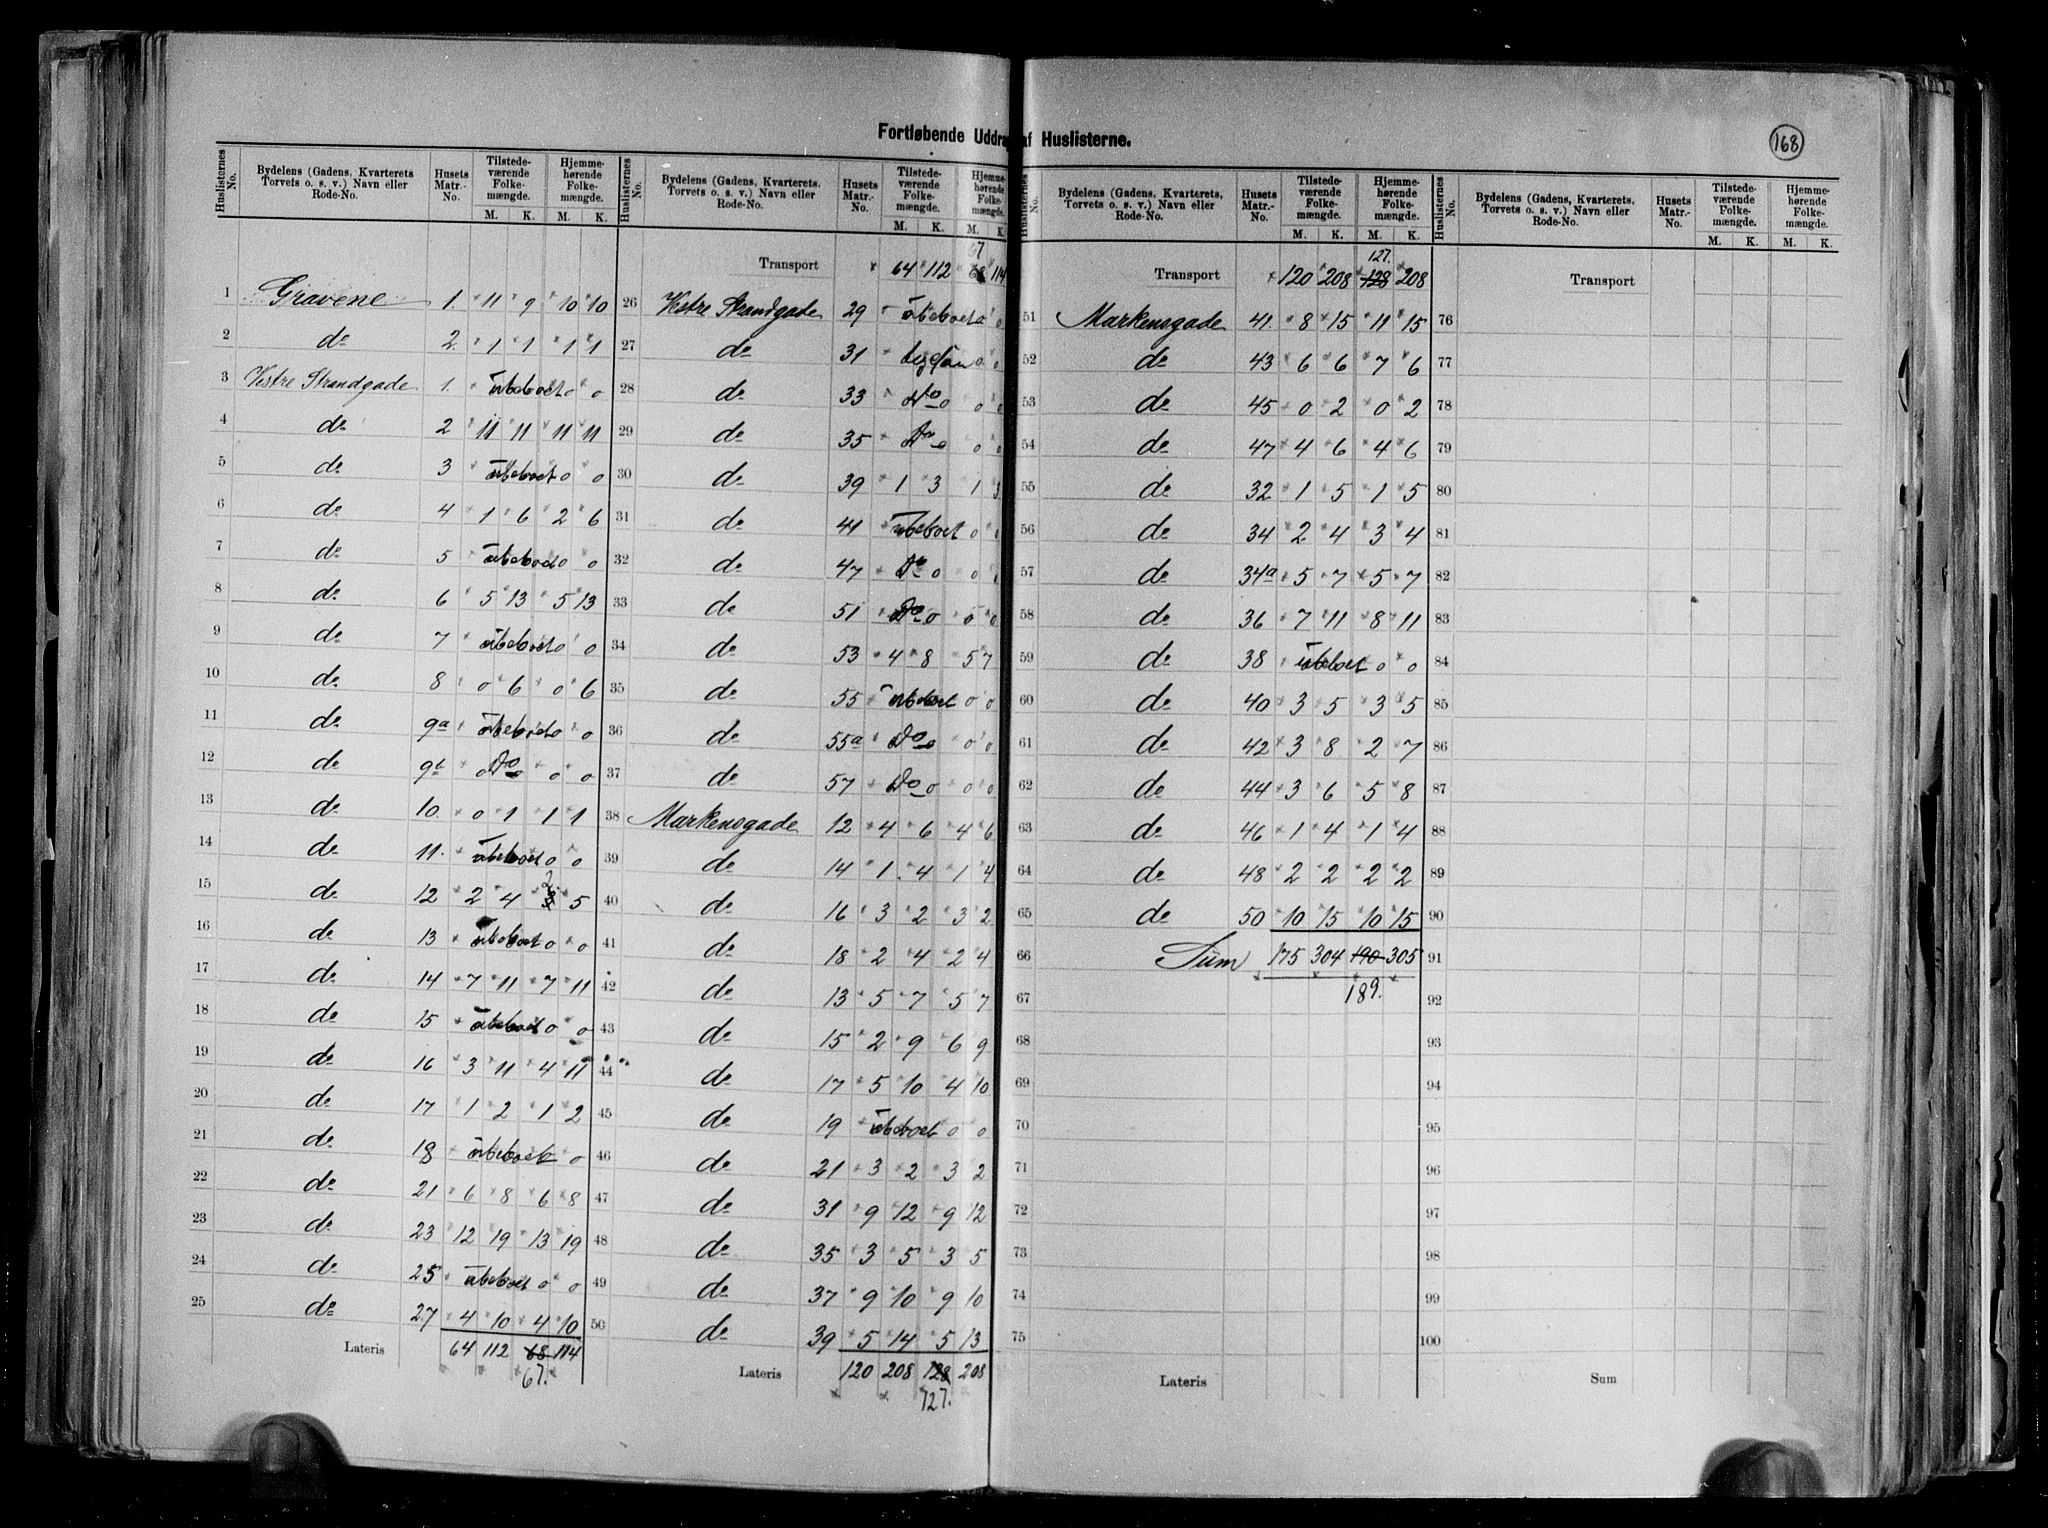 Fortløbende Uddrag af Huslisterne.
168
Huslisternes No. | Bydelens (Gadens, Kvarterets, Torvets o. s. v.) Navn eller Rode-No. | Husets Matr.-No. | Tilstedeværende Folkemængde. M. K. | Hjemmehørende Folkemængde. M. K.
1 Gravene 1. 11 9 10 10
2 do 2. 1 1 1 1
3 Vestre Strandgade 1. ubeboet 0 0
4 do 2 11 11 11 11
5 do 3 ubeboet 0 0
6 do 4 1 6 2 6
7 do 5 ubeboet 0 0
8 do 6 5 13 5 13
9 do 7 ubeboet 0 0
10 do 8 0 6 0 6
11 do 9a ubeboet 0 0
12 do 9b 0 Do 0 0 0
13 do 10. 0 1 1 1
14 do 11. ubeboet 0 0
15 do 12 2 4 2 5
16 do 13 ubeboet 0 0
17 do 14 7 11 7 11
18 do 15 ubeboet 0 0
19 do 16 3 11 4 11
20 do 17 1 2 1 2
21 do 18 ubeboet 0
22 do 21 6 8 6 8
23 do 23 12 19 13 19
24 do 25 ubeboet 0 0
25 do 27 4 10 4 10
Lateris 64 112 68 114
67.
Huslisternes No. | Bydelens (Gadens, Kvarterets, Torvets o. s. v.) Navn eller Rode-No. | Husets Matr.-No. | Tilstedeværende Folkemængde. M. K. | Hjemmehørende Folkemængde. M. K.
67
Transport 64 112 68 114
26 Vestre Strandgade 29 ubeboet 0
27 do 31 0 0
28 do 33 Do 0 0 0
29 do 35 Do 0 0
30 do 39 1 3 1 3
31 do 41 ubeboet 0 0
32 do 47 Do 0 0 0
33 do 51 Do 0 0 0
34 do 53 4 8 5 7
35 do 55 ubeboet 0 0
36 do 55a Do 0 0 0
37 do 57 Do 0 0 0
38 Markensgade 12 4 6 4 6
39 do 14 1 4 1 4
40 do 16 3 2 3 2
41 do 18 2 4 2 4
42 do 13 5 7 5 7
43 do 15 2 9 6 9
44 do 17 5 10 4 10
45 do 19 ubeboet 0 0
46 do 21 3 2 3 2
47 do 31 9 12 9 12
48 do 35 3 5 3 5
49 do 37 9 10 9 10
50 do 39 5 14 5 13
Lateris 120 208 128 208
127.
Huslisternes No. | Bydelens (Gadens, Kvarterets, Torvets o. s. v.) Navn eller Rode-No. | Husets Matr.-No. | Tilstedeværende Folkemængde. M. K. | Hjemmehørende Folkemængde. M. K.
127.
Transport 120 208 128 208
51 Markensgade 41. 8 15 11 15
52 do 43 6 6 7 6
53 do 45 0 2 0 2
54 do 47 4 6 4 6
55 do 32 1 5 1 5
56 do 34 2 4 3 4
57 do 34a 5 7 5 7
58 do 36 7 11 8 11
59 do 38 ubeboet 0 0
60 do 40 3 5 3 5
61 do 42 3 8 2 7
62 do 44 3 6 5 8
63 do 46 1 4 1 4
64 do 48 2 2 2 2
65 do 50 10 15 10 15
66 Sum 175 304 190 305
67 189.
68
69
70
71
72
73
74
75
Lateris
Huslisternes No. | Bydelens (Gadens, Kvarterets, Torvets o. s. v.) Navn eller Rode-No. | Husets Matr.-No. | Tilstedeværende Folkemængde. M. K. | Hjemmehørende Folkemængde. M. K.
Transport
76
77
78
79
80
81
82
83
84
85
86
87
88
89
90
91
92
93
94
95
96
97
98
99
100
Sum